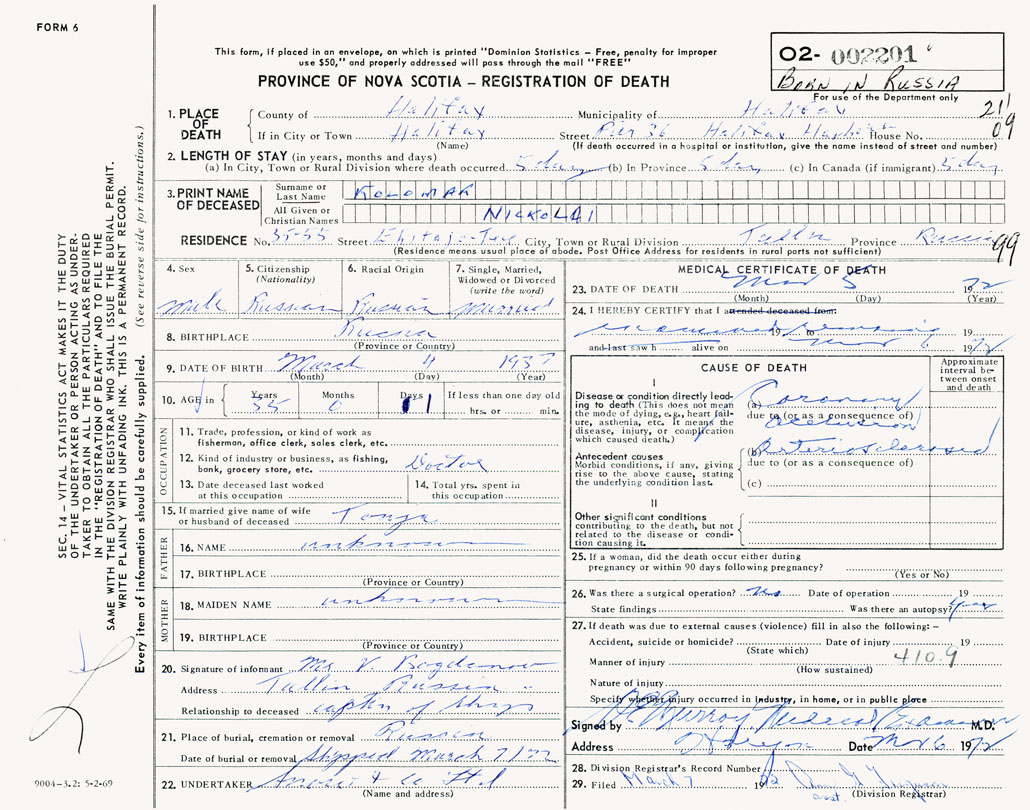 FORM 6
This form, if placed in an envelope, on which is printed "Dominion Statistics – Free, penalty for improper
use $50," and properly addressed will pass through the mail "FREE"
PROVINCE OF NOVA SCOTIA – REGISTRATION OF DEATH
02- 002201
BORN IN RUSSIA
For use of the Department only
211
09
1. PLACE OF DEATH
County of Halifax Municipality of Halifax
If in City or Town Halifax Street Pier 36 Halifax House No.
(Name) (If death occurred in a hospital or institution, give the name instead of street and number)
2. LENGTH OF STAY (in years, months and days)
(a) In City, Town or Rural Division where death occurred 5 day (b) In Province 5 day (c) In Canada (if immigrant) 5 day
3. PRINT NAME OF DECEASED
Surname or Last Name KOLOMAR
All Given or Christian Names NICKOLAI
RESIDENCE No. 35-55 Street City, Town or Rural Division Tallin Province Russia
99
(Residence means usual place of abode. Post Office Address for residents in rural parts not sufficient)
4. Sex 5. Citizenship (Nationality) 6. Racial Origin 7. Single, Married, Widowed or Divorced (write the word)
Male Russian Russian Married
8. BIRTHPLACE Russia
(Province or Country)
9. DATE OF BIRTH March 4 1937
(Month) (Day) (Year)
10. AGE in Years Months Days If less than one day old
35 0 1 hrs. or min.
OCCUPATION
11. Trade, profession, or kind of work as
fisherman, office clerk, sales clerk, etc.
12. Kind of industry or business, as fishing,
bank, grocery store, etc. Doctor
13. Date deceased last worked
at this occupation
14. Total yrs. spent in
this occupation
15. If married give name of wife
or husband of deceased Tonja
FATHER
16. NAME unknown
17. BIRTHPLACE
(Province or Country)
MOTHER
18. MAIDEN NAME unknown
19. BIRTHPLACE
(Province or Country)
20. Signature of informant Mr V. Bogdanow
Address Tallin Russia
Relationship to deceased captn of ship
21. Place of burial, cremation or removal Russia
Date of burial or removal Shipped March 7/72
22. UNDERTAKER Snow & Co Ltd
(Name and address)
MEDICAL CERTIFICATE OF DEATH
23. DATE OF DEATH Mar 5 1972
(Month) (Day) (Year)
24. I HEREBY CERTIFY that I attended deceased from:
examined remains 19 to 19
and last saw h alive on Mar 6 1972
CAUSE OF DEATH
Approximate interval between onset and death
I
Disease or condition directly lead-
ing to death (This does not mean
the mode of dying, e.g., heart fail-
ure, asthenia, etc. It means the
disease, injury, or complication
which caused death.)
(a) Coronary
due to (or as a consequence of)
occlusion
Antecedent causes
Morbid conditions, if any, giving
rise to the above cause, stating
the underlying condition last.
(b) Arteriosclerosis
due to (or as a consequence of)
(c)
II
Other significant conditions
contributing to the death, but not
related to the disease or condi-
tion causing it.
25. If a woman, did the death occur either during
pregnancy or within 90 days following pregnancy?
(Yes or No)
26. Was there a surgical operation? No Date of operation 19
State findings Was there an autopsy?
27. If death was due to external causes (violence) fill in also the following: –
Accident, suicide or homicide? Date of injury 19
(State which)
410.9
Manner of injury
(How sustained)
Nature of injury
Specify whether injury occurred in Industry, in home, or in public place
Signed by Murray Medical Examiner M.D.
Address Halifax Date Mar 6 1972
28. Division Registrar's Record Number
29. Filed March 7 1972
asst. (Division Registrar)
SEC. 14 – VITAL STATISTICS ACT MAKES IT THE DUTY
OF THE UNDERTAKER OR PERSON ACTING AS UNDER-
TAKER TO OBTAIN ALL THE PARTICULARS REQUIRED
IN THE "REGISTRATION OF DEATH" AND TO FILE THE
SAME WITH THE DIVISION REGISTRAR WHO SHALL ISSUE THE BURIAL PERMIT.
WRITE PLAINLY WITH UNFADING INK. THIS IS A PERMANENT RECORD.
Every item of information should be carefully supplied. (See reverse side for instructions.)
9004-3.2: 5-2-69